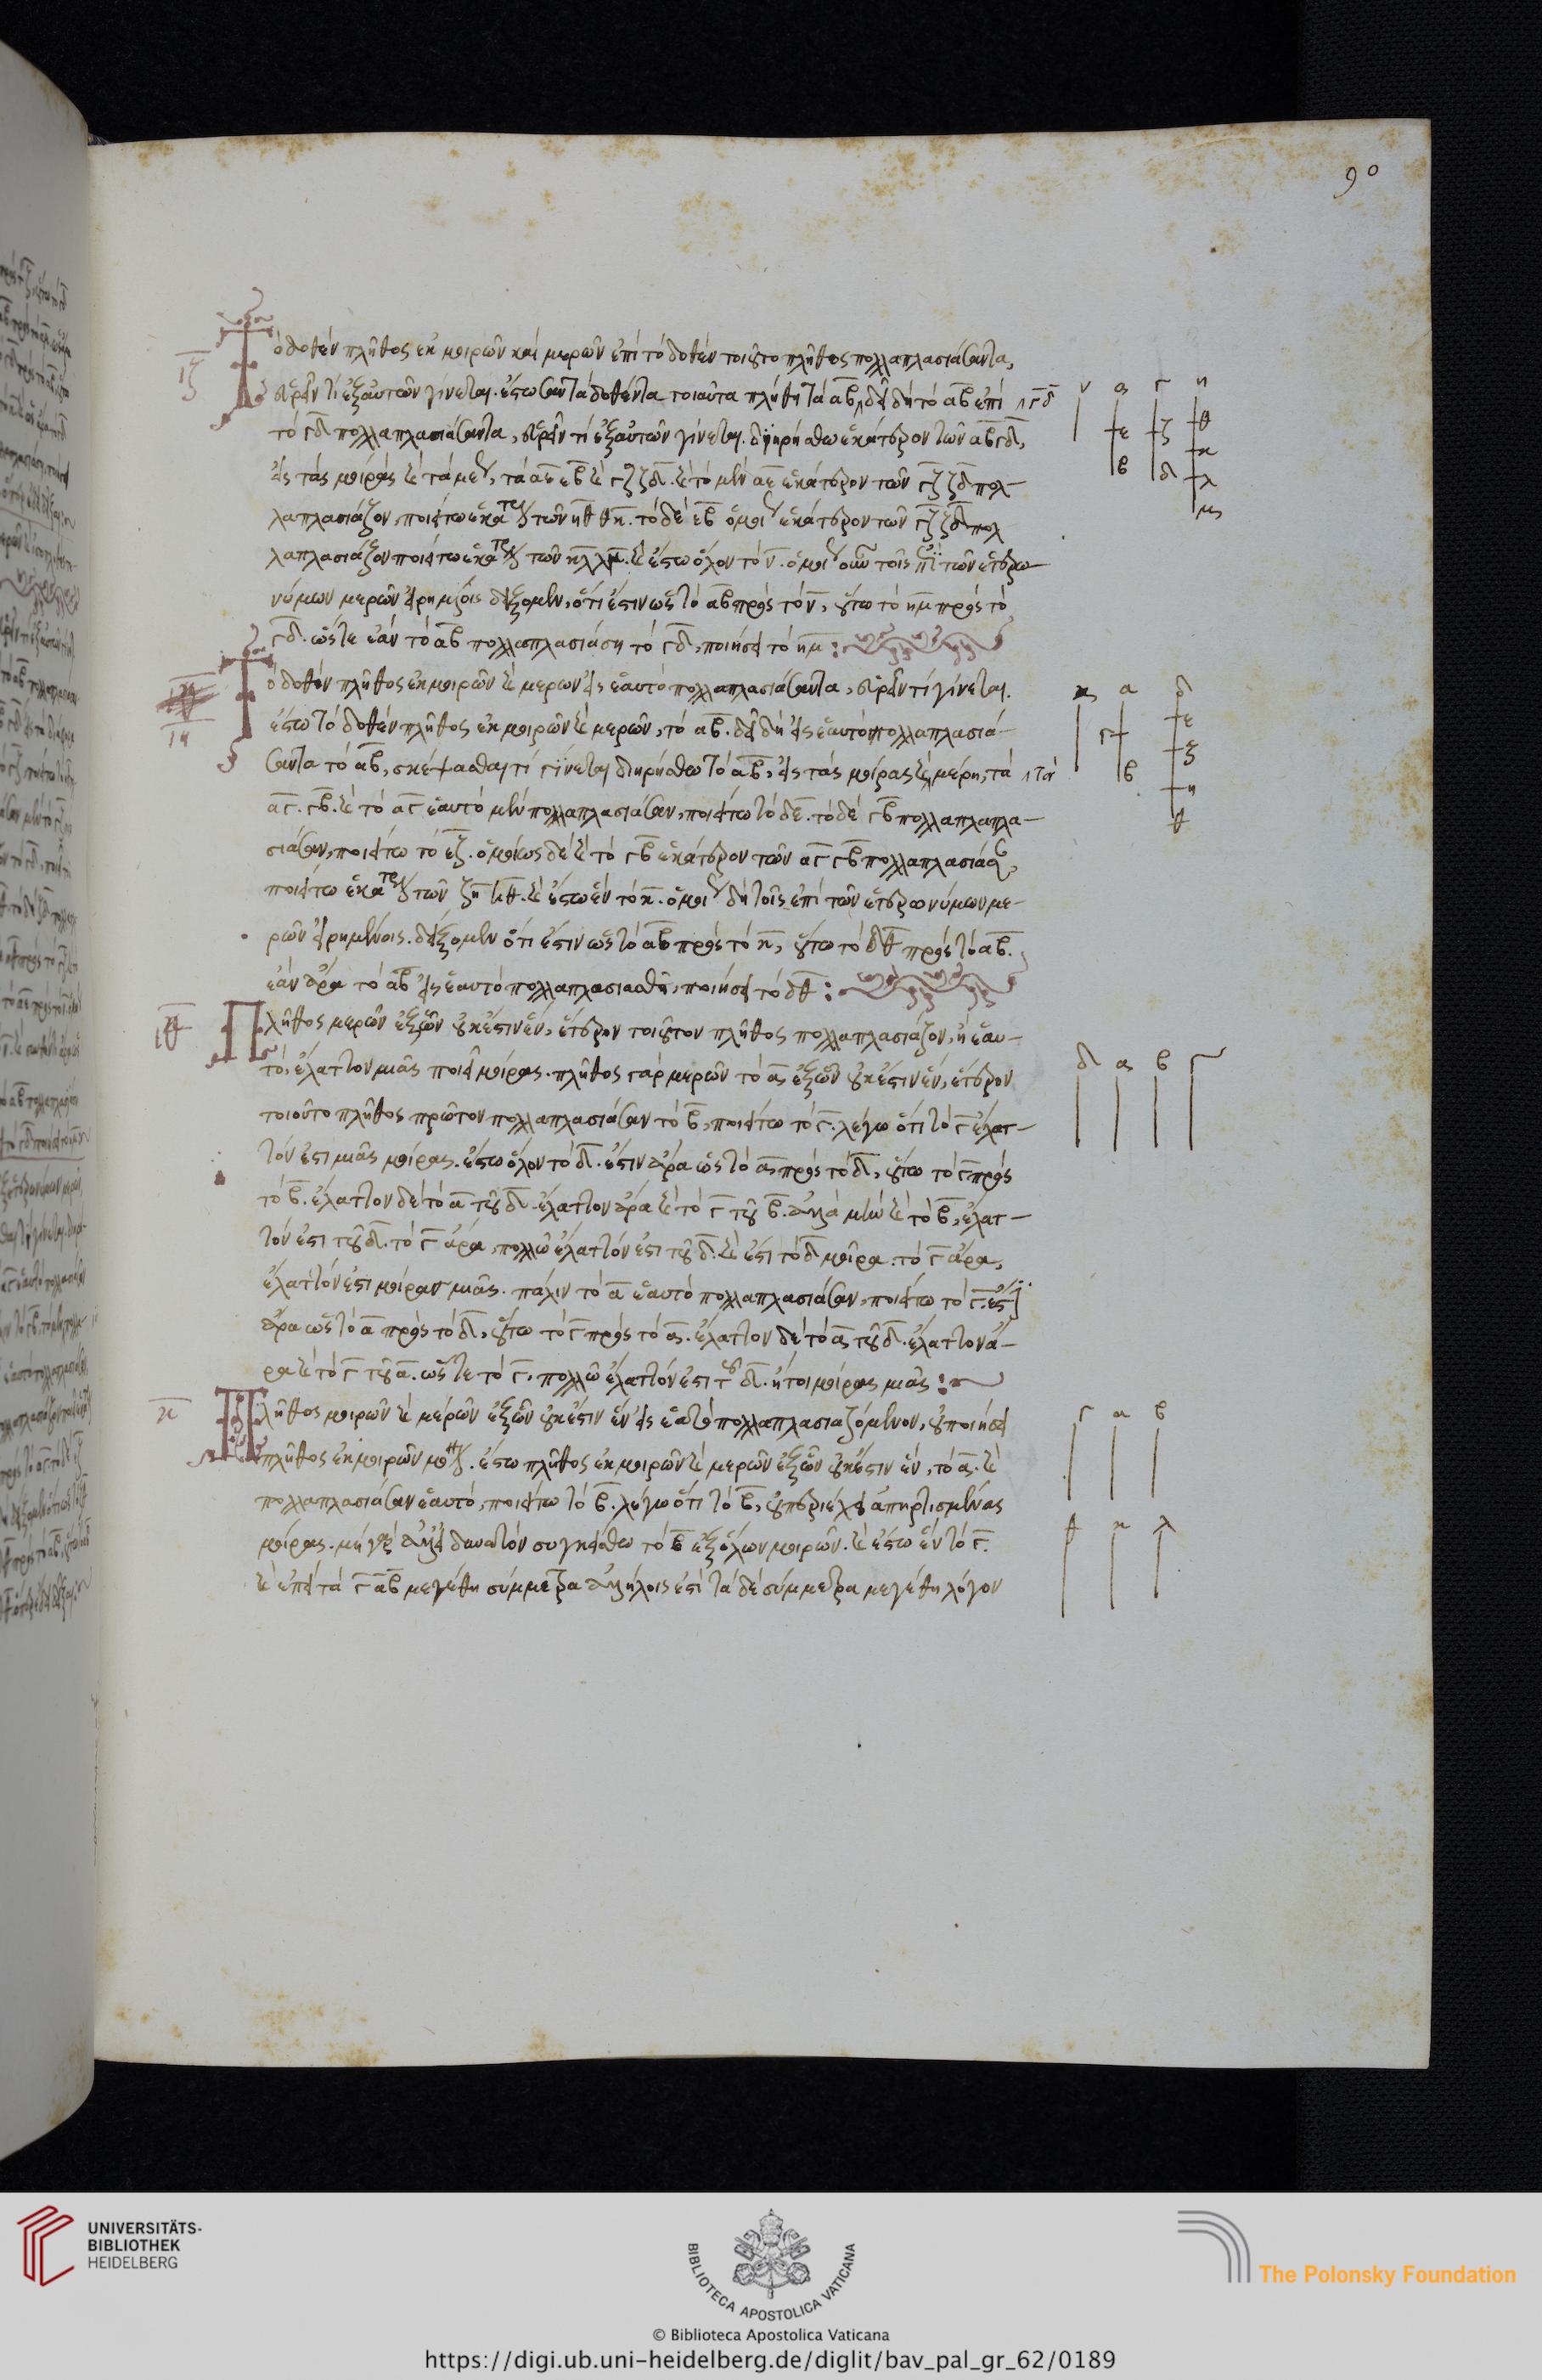 90
ιζ
Τὸ δοθὲν πλῆθος ἐκ μοιρῶν καὶ μερῶν ἐπὶ τὸ δοθὲν τοιοῦτο πλῆθος πολλαπλασιάσαντα,
εὑρεῖν τί ἐξ αὐτῶν γίνεται. ἔστωσαν τὰ δοθέντα τοιαῦτα πλήθη τὰ αβ, δεῖ δὴ τὸ αβ ἐπὶ
γδ
τὸ γδ πολλαπλασιάσαντα, εὑρεῖν τί ἐξ αὐτῶν γίνεται. διῃρήσθω ἑκάτερον τῶν αβ γδ,
εἰς τὰς μοίρας καὶ τὰ μέρη, τὰ αε εβ καὶ γζ ζδ. καὶ τὸ μὲν αε ἑκάτερον τῶν γζ ζδ πολ-
λαπλασιάζον, ποιείτω ἑκάτερον τῶν ηθ θκ. τὸ δὲ εβ ὁμοίως ἑκάτερον τῶν γζ ζδ πολ
λαπλασιάζον ποιείτω ἑκάτερον τῶν κλ λμ. καὶ ἔστω ὅλον τὸ ν. ὁμοίως οὖν τοῖς ἐπὶ τῶν ἑτερω-
νύμων μερῶν εἰρημένοις δείξομεν, ὅτι ἐστὶν ὡς τὸ αβ πρὸς τὸ ν, οὕτω τὸ ημ πρὸς τὸ
γδ. ὥστε ἐὰν τὸ αβ πολλαπλασιάσῃ τὸ γδ, ποιήσει τὸ ημ:
ιη
Τὸ δοθὲν πλῆθος ἐκ μοιρῶν καὶ μερῶν εἰς ἑαυτὸ πολλαπλασιάσαντα, εὑρεῖν τί γίνεται.
ἔστω τὸ δοθὲν πλῆθος ἐκ μοιρῶν καὶ μερῶν, τὸ αβ. δεῖ δὴ εἰς ἑαυτὸ πολλαπλασιά-
σαντα τὸ αβ, σκέψασθαι τί γίνεται διῃρήσθω τὸ αβ, εἰς τὰς μοίρας καὶ μέρη, τὰ
τὰ
αγ. γβ. καὶ τὸ αγ ἑαυτὸ μὲν πολλαπλασιάσαν, ποιείτω τὸ δε. τὸ δὲ γβ πολλαπλαπλα-
σιάσαν, ποιείτω τὸ εζ. ὁμοίως δὲ καὶ τὸ γβ ἑκάτερον τῶν αγ γβ πολλαπλασιάσαν,
ποιείτω ἑκάτερον τῶν ζη ηθ. καὶ ἔστω ἓν τὸ κ. ὁμοίως δὴ τοῖς ἐπὶ τῶν ἑτερωνύμων με-
ρῶν εἰρημένοις. δείξομεν ὅτι ἐστὶν ὡς τὸ αβ πρὸς τὸ κ, οὕτω τὸ δθ πρὸς τὸ αβ.
ἐὰν ἄρα τὸ αβ εἰς ἑαυτὸ πολλαπλασιασθῇ, ποιήσει τὸ δθ:
ιθ
Πλῆθος μερῶν ἐξ ὧν οὐκ ἔστιν ἕν, ἕτερον τοιοῦτον πλῆθος πολλαπλασιάζον, ἢ ἑαυ-
τό, ἔλαττον μιᾶς ποιεῖ μοίρας. πλῆθος γὰρ μερῶν τὸ α ἐξ ὧν οὐκ ἔστιν ἕν, ἕτερον
τοιοῦτο πλῆθος πρῶτον πολλαπλασιάσαν τὸ β, ποιείτω τὸ γ. λέγω ὅτι τὸ γ ἔλατ-
τόν ἐστι μιᾶς μοίρας. ἔστω ὅλον τὸ δ. ἔστιν ἄρα ὡς τὸ α πρὸς τὸ δ, οὕτω τὸ γ πρὸς
τὸ β. ἔλαττον δὲ τὸ α τοῦ δ. ἔλαττον ἄρα καὶ τὸ γ τοῦ β. ἀλλὰ μὴν καὶ τὸ β, ἔλατ-
τόν ἐστι τοῦ δ. τὸ γ ἄρα, πολλῷ ἔλαττόν ἐστι τοῦ δ. καὶ ἔστι τὸ δ μοῖρα. τὸ γ ἄρα,
ἔλαττόν ἐστι μοίρας μιᾶς. πάλιν τὸ α ἑαυτὸ πολλαπλασιάσαν, ποιείτω τὸ γ. ἔστιν
ἄρα ὡς τὸ α πρὸς τὸ δ, οὕτω τὸ γ πρὸς τὸ α. ἔλαττον δὲ τὸ α τοῦ δ. ἔλαττον ἄ-
ρα καὶ τὸ γ τοῦ α. ὥστε τὸ γ, πολλῷ ἔλαττόν ἐστι τοῦ δ. ἤτοι μοίρας μιᾶς:
κ
Πλῆθος μοιρῶν καὶ μερῶν ἐξ ὧν οὐκ ἔστιν ἓν εἰς ἑαυτὸ πολλαπλασιαζόμενον, οὐ ποιήσει
πλῆθος ἐκ μοιρῶν μόνων. ἔστω πλῆθος ἐκ μοιρῶν καὶ μερῶν ἐξ ὧν οὐκ ἔστιν ἕν, τὸ α. καὶ
πολλαπλασιάσαν ἑαυτό, ποιείτω τὸ β. λέγω ὅτι τὸ β, οὐ περιέχει ἀπηρτισμένας
μοίρας. μὴ γὰρ ἀλλ' εἰ δυνατὸν συγκείσθω τὸ β ἐξ ὅλων μοιρῶν. καὶ ἔστω ἓν τὸ γ.
καὶ ἐπεὶ τὰ γ αβ μεγέθη σύμμετρα ἀλλήλοις ἐστὶ τὰ δὲ σύμμετρα μεγέθη λόγον
ν α γ η
ε ζ θ
κ
β δ λ
μ
κ α δ
ε
γ
ζ
β
η
θ
δ α β γ
γ α β
θ κ λ
UNIVERSITÄTS-
BIBLIOTHEK
HEIDELBERG
BIBLIOTECA APOSTOLICA VATICANA
The Polonsky Foundation
© Biblioteca Apostolica Vaticana
https://digi.ub.uni-heidelberg.de/diglit/bav_pal_gr_62/0189